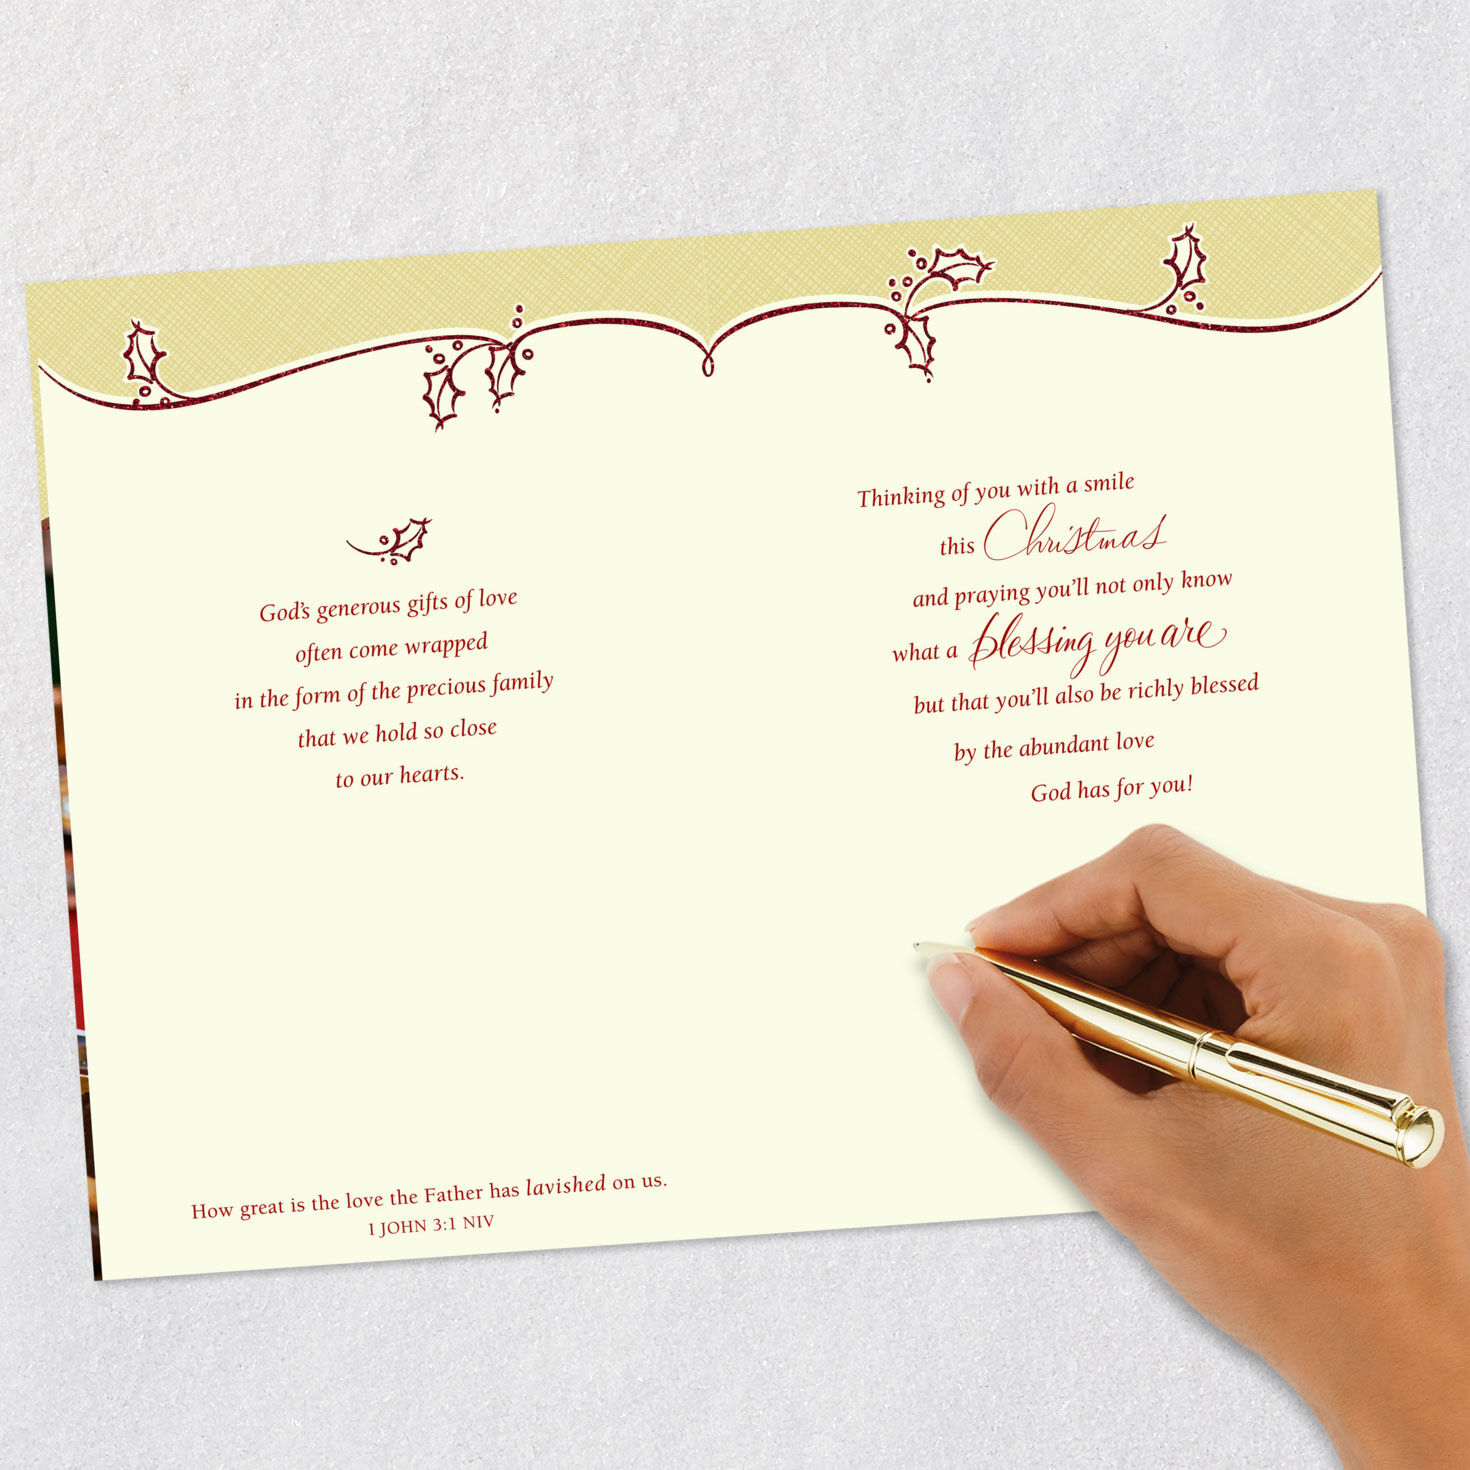 God's generous gifts of love
often come wrapped
in the form of the precious family
that we hold so close
to our hearts.
How great is the love the Father has lavished on us.
I JOHN 3:1 NIV
Thinking of you with a smile
this Christmas
and praying you'll not only know
what a blessing you are
but that you'll also be richly blessed
by the abundant love
God has for you!